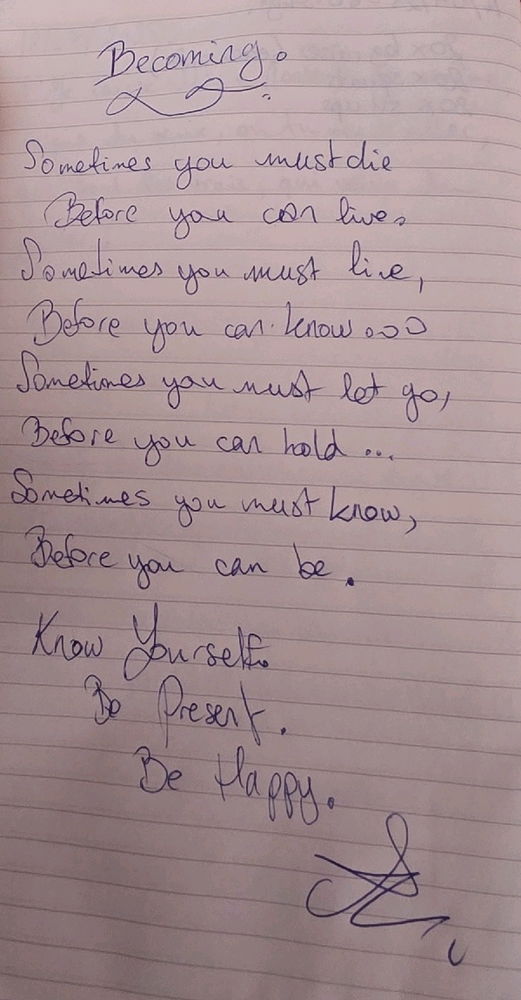 Becoming.
Sometimes you must die
Before you can live.
Sometimes you must live,
Before you can know...
Sometimes you must let go,
Before you can hold ...
Sometimes you must know,
Before you can be.
Know Yourself.
Be Present.
Be Happy.